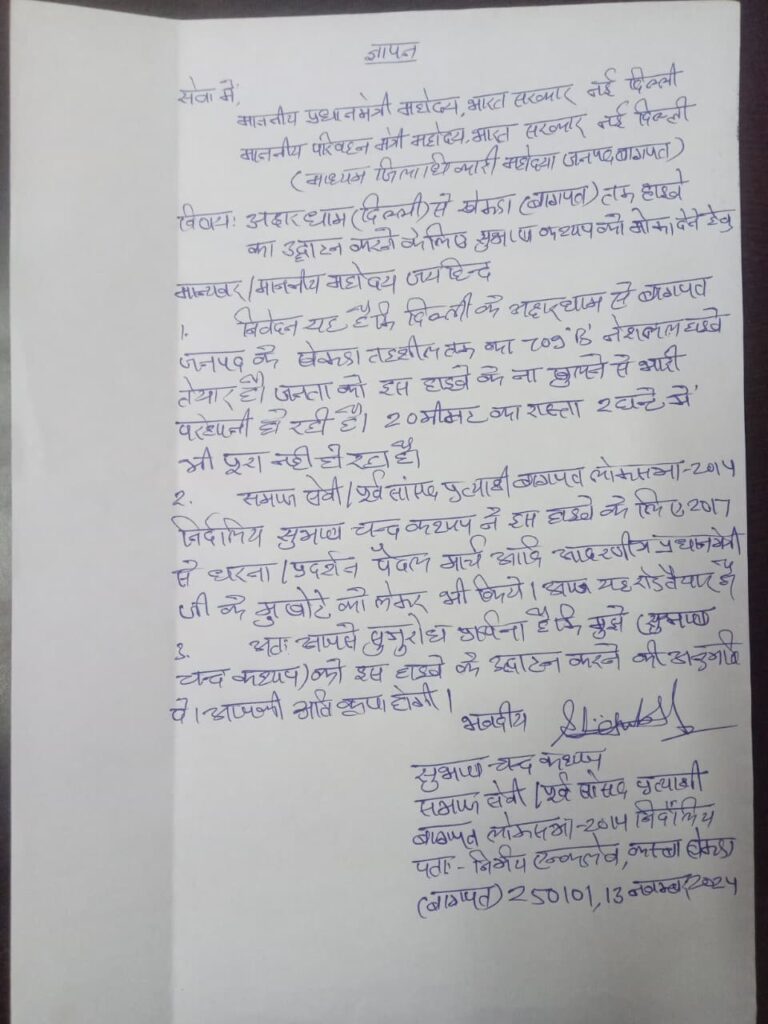 ज्ञापन
सेवा में,
माननीय प्रधानमंत्री महोदय, भारत सरकार नई दिल्ली
माननीय परिवहन मंत्री महोदय, भारत सरकार नई दिल्ली
(माध्यम जिलाधिकारी महोदया जनपद बागपत)
विषय: अक्षरधाम (दिल्ली) से खेकडा (बागपत) तक हाइवे
का उद्घाटन करने के लिए सुभाष कश्यप को मौका देने हेतु
मान्यवर / माननीय महोदय जय हिन्द
1. निवेदन यह है कि दिल्ली के अक्षरधाम से बागपत
जनपद के खेकडा तहशील तक का 709 'B' नेशनल हाइवे
तैयार है। जनता को इस हाइवे के ना खुलने से भारी
परेशानी हो रही है। 20 मीनट का रास्ता 2 घन्टे में
भी पूरा नही हो रहा है।
2. समाज सेवी / पूर्व सांसद प्रत्याशी बागपत लोकसभा-2014
निर्दालिय सुभाष चन्द कश्यप ने इस हाइवे के लिए 2017
से धरना / प्रदर्शन पैदल मार्च आदि आदरणीय प्रधानमंत्री
जी के मुखोटे को लेकर भी किये। आज यह रोड तैयार है
3. अतः आपसे प्रार्थना है कि मुझे (सुभाष
चन्द कश्यप) को इस हाइवे के उद्घाटन करने की अनुमति
दे। आपकी अति कृपा होगी।
भवदीय
सुभाष चन्द कश्यप
समाज सेवी / पूर्व सांसद प्रत्याशी
बागपत लोकसभा-2014 निर्दालिय
पता:- निर्भय एन्कलेव, कस्बा खेकडा
(बागपत) 250101, 13 नवम्बर 2024